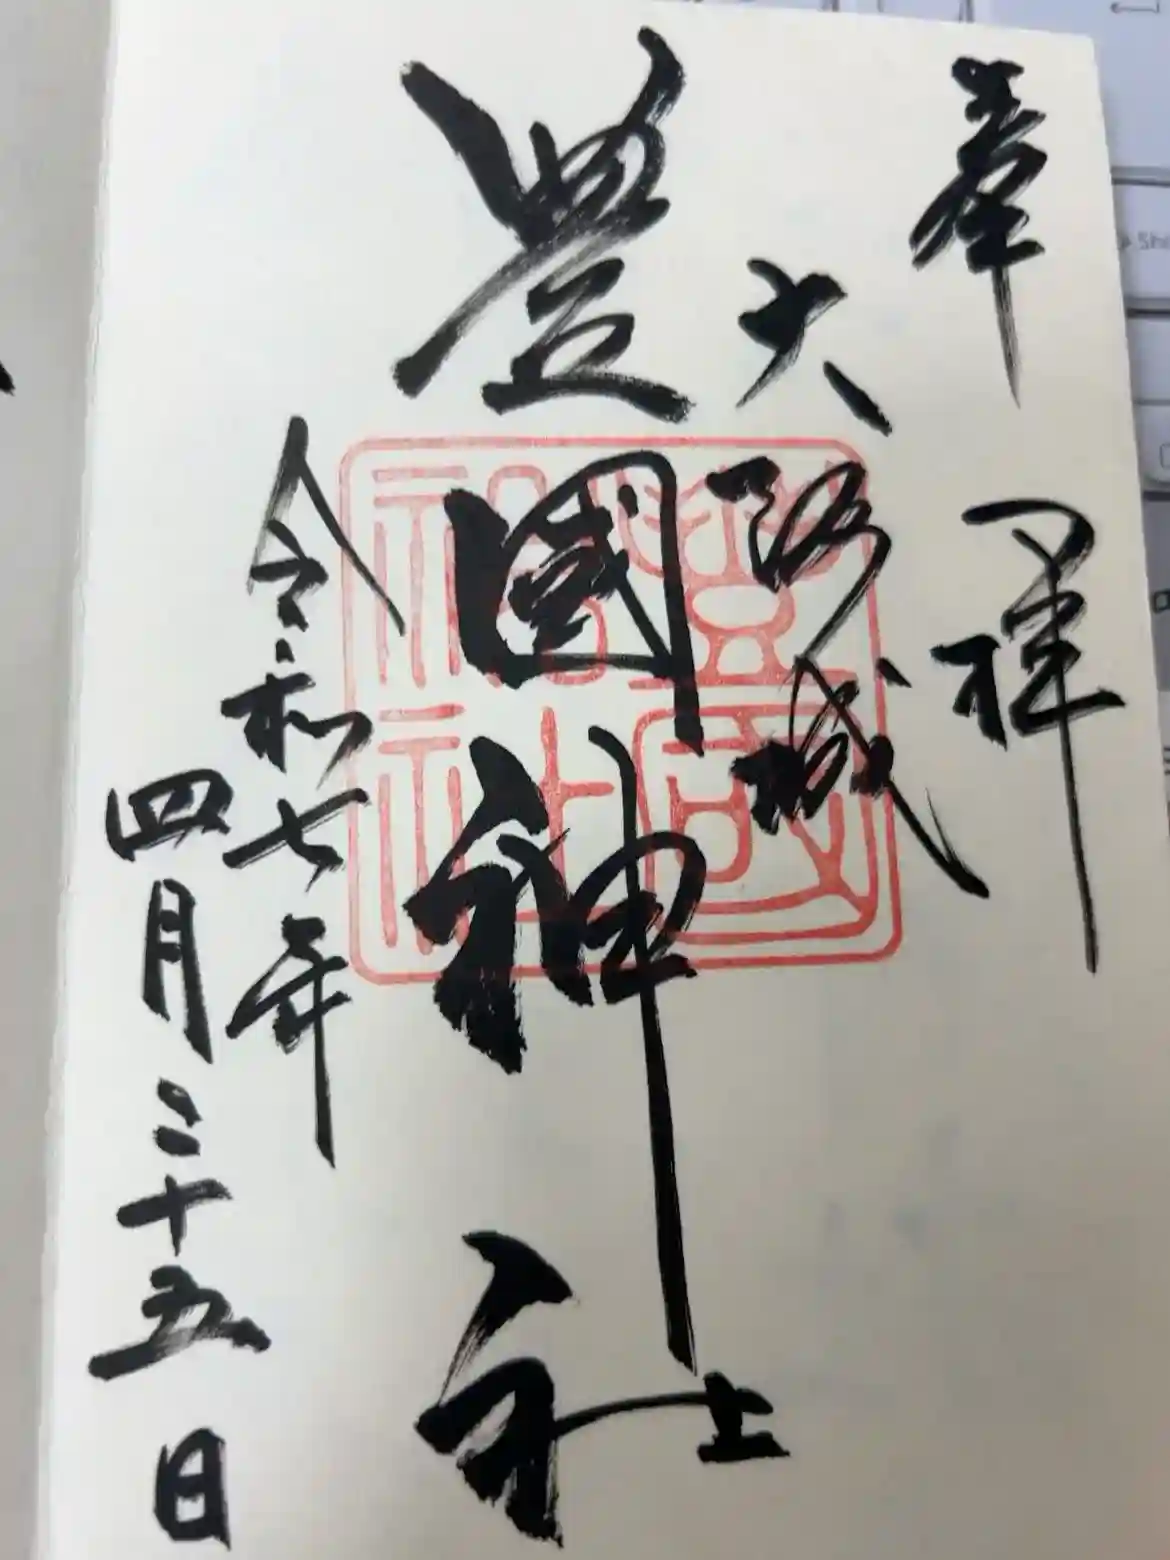 奉拝
大阪城
豊國神社
令和七年
四月二十五日
豊國
神社